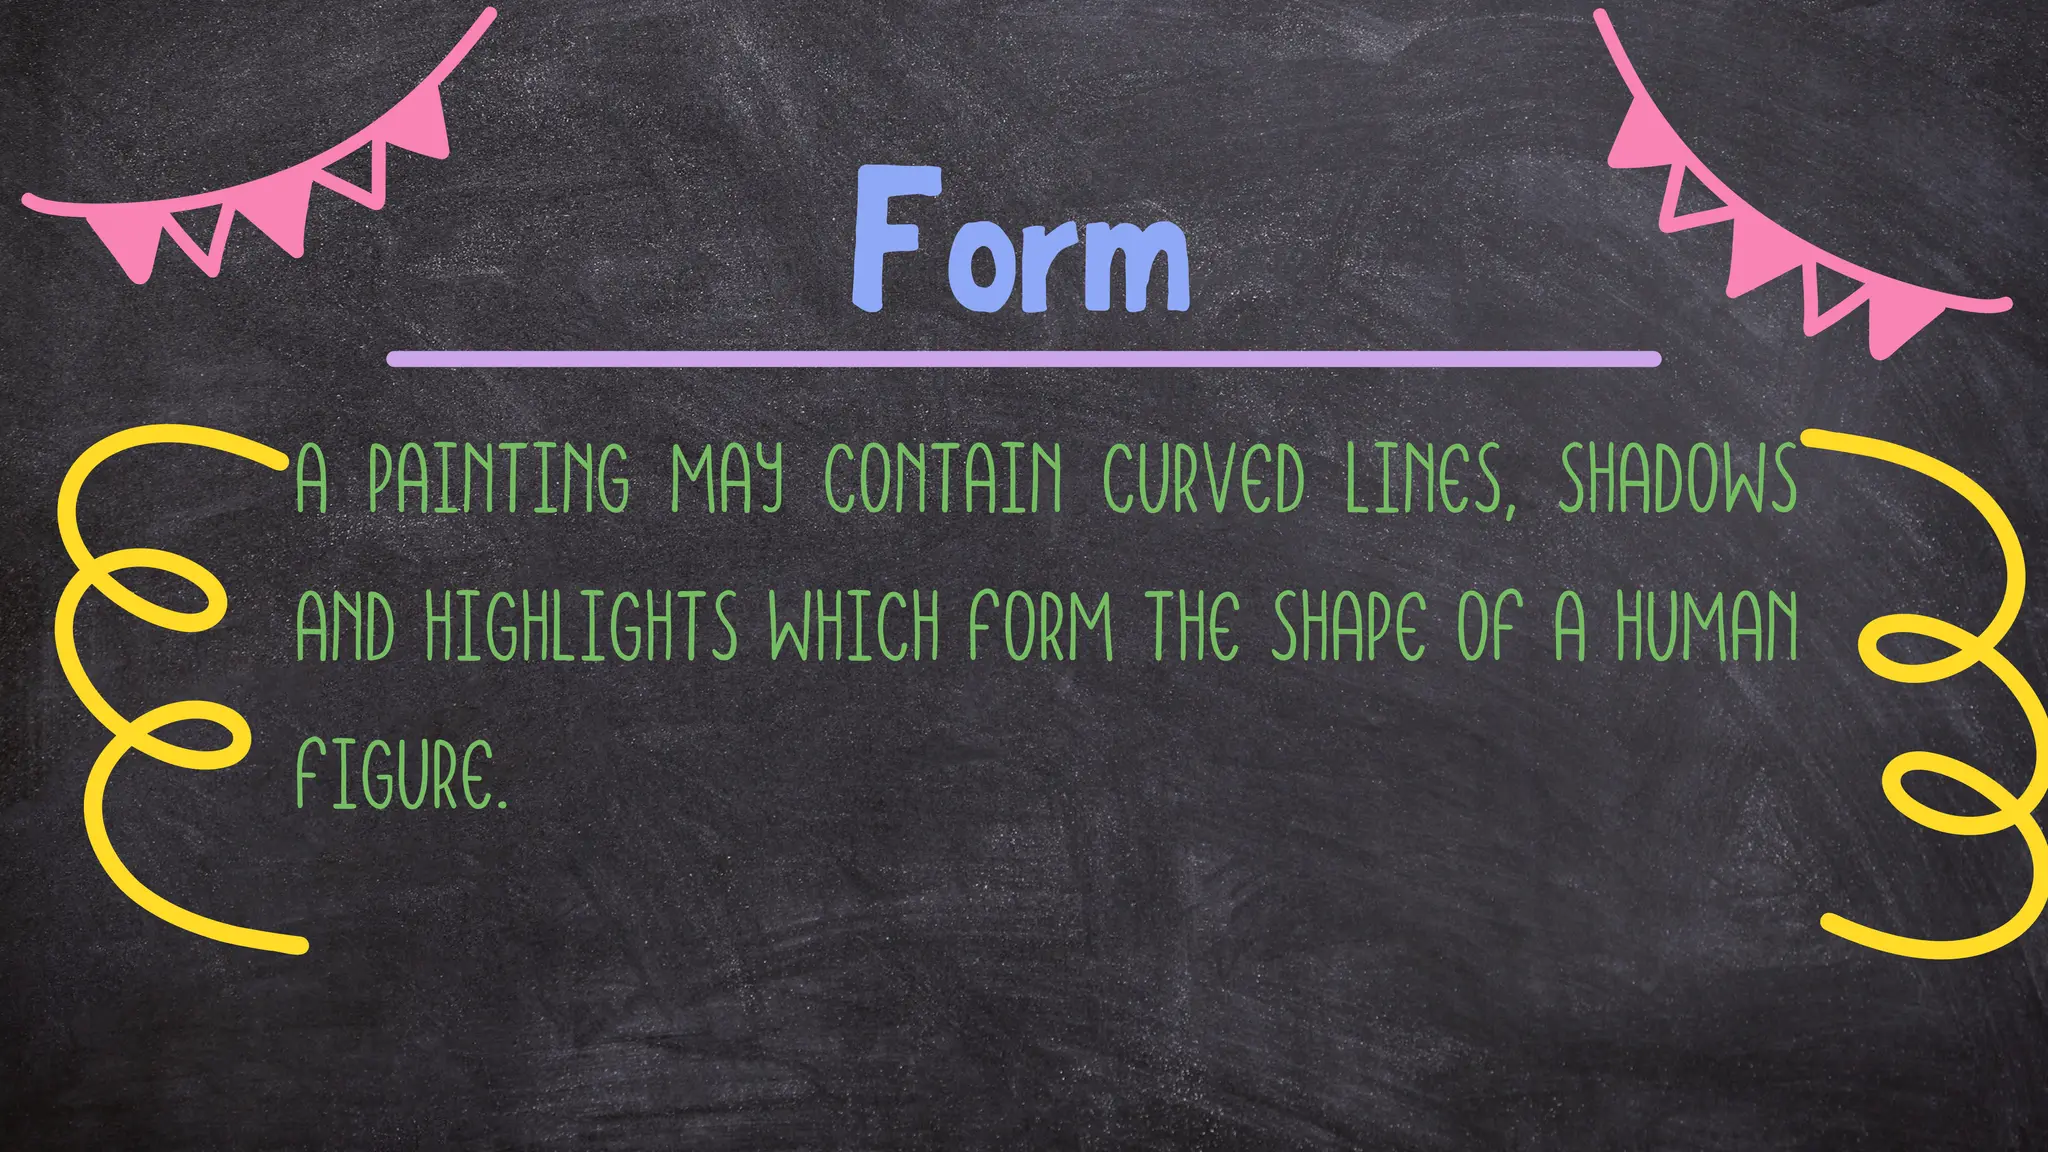 Form
A PAINTING MAY CONTAIN CURVED LINES, SHADOWS
AND HIGHLIGHTS WHICH FORM THE SHAPE OF A HUMAN
FIGURE.